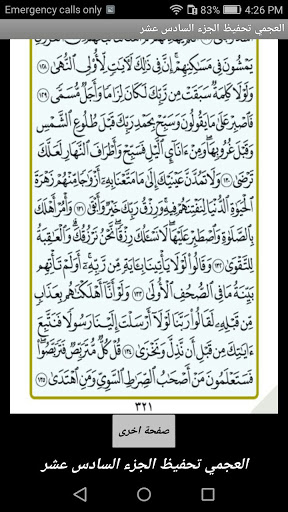 Emergency calls only 4:26 PM
العجمي تحفيظ الجزء السادس عشر
يَمْشُونَ فِي مَسَٰكِنِهِمْ إِنَّ فِي ذَٰلِكَ لَأٓيَٰتٍ لِّأُوْلِي ٱلنُّهَىٰ ١٢٨
وَلَوْلَا كَلِمَةٌ سَبَقَتْ مِن رَّبِّكَ لَكَانَ لِزَامًا وَأَجَلٌ مُّسَمًّى ١٢٩
فَٱصْبِرْ عَلَىٰ مَا يَقُولُونَ وَسَبِّحْ بِحَمْدِ رَبِّكَ قَبْلَ طُلُوعِ ٱلشَّمْسِ
وَقَبْلَ غُرُوبِهَا وَمِنْ ءَانَآيِٕ ٱلَّيْلِ فَسَبِّحْ وَأَطْرَافَ ٱلنَّهَارِ لَعَلَّكَ
تَرْضَىٰ ١٣٠ وَلَا تَمُدَّنَّ عَيْنَيْكَ إِلَىٰ مَا مَتَّعْنَا بِهِۦٓ أَزْوَٰجًا مِّنْهُمْ زَهْرَةَ
ٱلْحَيَوٰةِ ٱلدُّنْيَا لِنَفْتِنَهُمْ فِيهِ وَرِزْقُ رَبِّكَ خَيْرٌ وَأَبْقَىٰ ١٣١ وَأْمُرْ أَهْلَكَ
بِٱلصَّلَوٰةِ وَٱصْطَبِرْ عَلَيْهَا لَا نَسْـَٔلُكَ رِزْقًا نَّحْنُ نَرْزُقُكَ وَٱلْعَٰقِبَةُ
لِلتَّقْوَىٰ ١٣٢ وَقَالُواْ لَوْلَا يَأْتِينَا بِـَٔايَةٍ مِّن رَّبِّهِۦٓ أَوَلَمْ تَأْتِهِم
بَيِّنَةُ مَا فِي ٱلصُّحُفِ ٱلْأُولَىٰ ١٣٣ وَلَوْ أَنَّآ أَهْلَكْنَٰهُم بِعَذَابٍ
مِّن قَبْلِهِۦ لَقَالُواْ رَبَّنَا لَوْلَآ أَرْسَلْتَ إِلَيْنَا رَسُولًا فَنَتَّبِعَ
ءَايَٰتِكَ مِن قَبْلِ أَن نَّذِلَّ وَنَخْزَىٰ ١٣٤ قُلْ كُلٌّ مُّتَرَبِّصٌ فَتَرَبَّصُواْ
فَسَتَعْلَمُونَ مَنْ أَصْحَٰبُ ٱلصِّرَٰطِ ٱلسَّوِيِّ وَمَنِ ٱهْتَدَىٰ ١٣٥
٣٢١
صفحة اخرى
العجمي تحفيظ الجزء السادس عشر